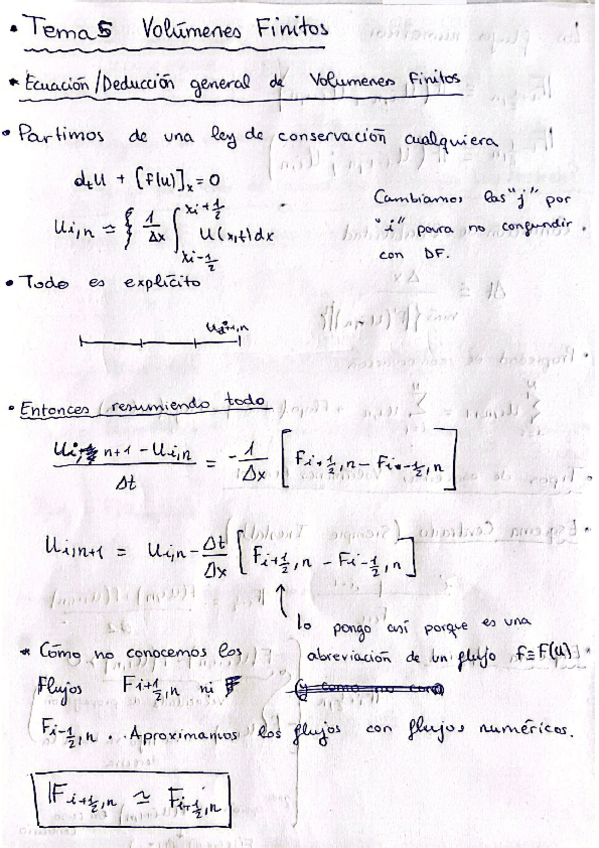 • Tema 5 Volúmenes Finitos
* Ecuación/Deducción general de Volumenes Finitos
• Partimos de una ley de conservación cualquiera
d_t u + [f(u)]_x = 0
U_{i,n} ≃ { 1/Δx ∫_{x_{i-1/2}}^{x_{i+1/2}} U(x,t)dx
Cambiamos las "j" por
"i" para no confundir
con DF.
• Todo es explícito
• Entonces resumiendo todo
(U_{i,n+1} - U_{i,n})/Δt = -1/Δx [F_{i+1/2,n} - F_{i-1/2,n}]
U_{i,n+1} = U_{i,n} - Δt/Δx [F_{i+1/2,n} - F_{i-1/2,n}]
↑ lo pongo así porque es una
abreviación de un flujo f≡F(u)
* Cómo no conocemos los
Flujos F_{i+1/2,n} ni
F_{i-1/2,n}. Aproximamos los flujos con flujos numéricos.
𝔽_{i+1/2,n} ≃ F_{i+1/2,n}